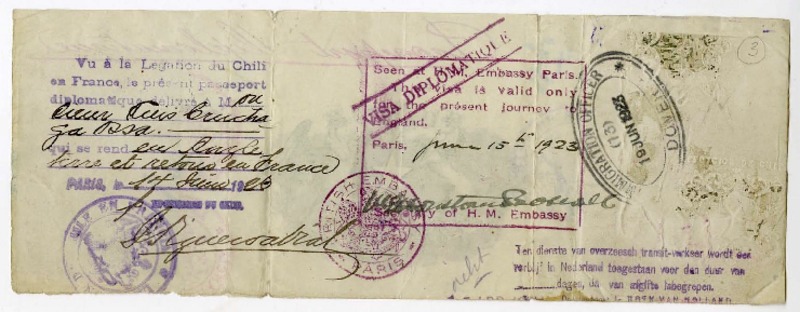 Vu à la Legation du Chili
en France, le présent passeport
diplomatique délivré à M
Luis Crucha
ga Ossa.
qui se rend en Angle
terre et retour en France
PARIS, le 14 Juin 1923
VISA DIPLOMATIQUE
Seen at H.M. Embassy Paris.
This visa is valid only
for the present journey to
England.
Paris, June 15th 1923
Secretary of H.M. Embassy
BRITISH EMBASSY
PARIS
IMMIGRATION OFFICER
(13)
19 JUN 1923
DOVER
3
Ten dienste van overzeesch transit-verkeer wordt een
verblijf in Nederland toegestaan voor den duur van
dagen, da van
HOEK VAN HOLLAND